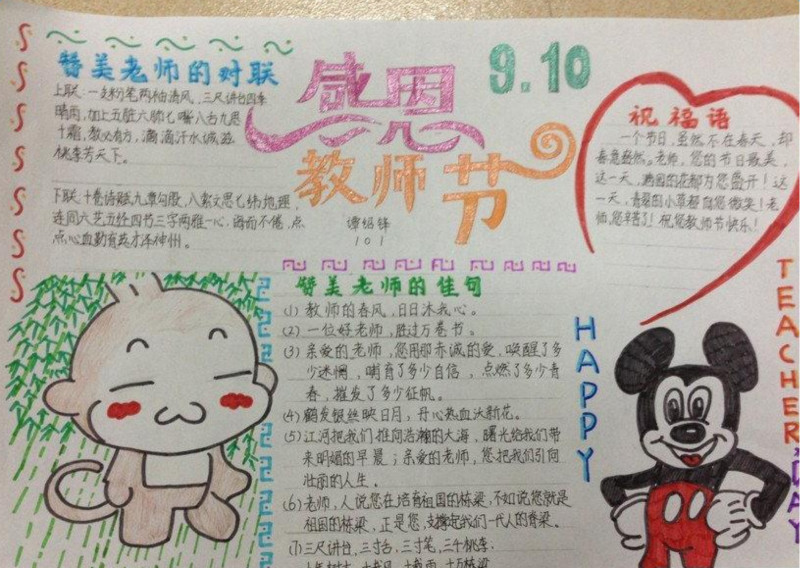 赞美老师的对联
上联:一支粉笔两袖清风,三尺讲台四季
晴雨,加上五脏六腑七嘴八舌九思
十霜,教必有方,滴滴汗水诚滋
桃李芳天下。
下联:十卷诗赋九章勾股,八索文思七纬地理,
连同六艺五经四书三字两雅一心,诲而不倦,点
点心血勤育英才泽神州。
感恩
教师节
谭绍锋
101
9.10
祝福语
一个节日,虽然不在春天,却
春意盎然。老师,您的节日最美,
这一天,满园的花都为您盛开!这
一天,青翠的小草都向您微笑!老
师,您辛苦了!祝您教师节快乐!
赞美老师的佳句
(1) 教师的春风,日日沐我心。
(2) 一位好老师,胜过万卷书。
(3) 亲爱的老师,您用那赤诚的爱,唤醒了多
少迷惘,哺育了多少自信,点燃了多少青
春,摧发了多少征帆。
(4) 鹤发银丝映日月,丹心热血沃新花。
(5) 江河把我们推向浩瀚的大海,曙光给我们带
来明媚的早晨;亲爱的老师,您把我们引向
壮丽的人生。
(6) 老师,人说您在培育祖国的栋梁,不如说您就是
祖国的栋梁,正是您,支撑起我们一代人的脊梁。
(7) 三尺讲台,三寸舌,三寸笔,三千桃李;
HAPPY
TEACHER'DAY